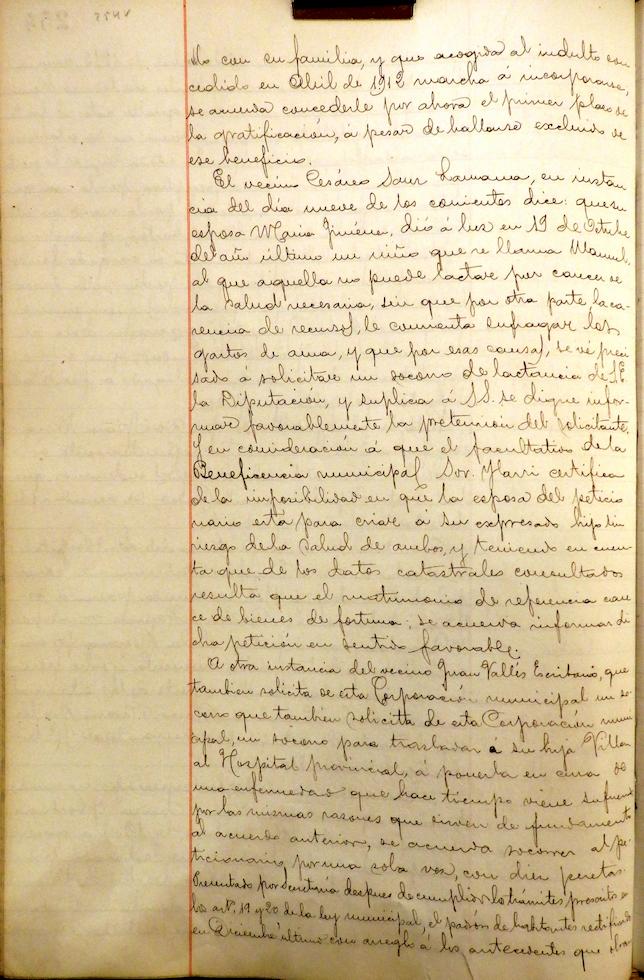 llo con su familia, y que acogida al indulto con
cedido en Abril de 1912 marcha á incorporarse,
se acuerda concederle por ahora el primer plazo de
la gratificación, a pesar de hallarse excluido de
ese beneficio.
El vecino Cesáreo Sanz Lamana, en instan
cia del dia nueve de los corrientes dice: que su
esposa Maria Jiménez, dió á luz en 19 de Octubre
del año último un niño que se llama Manuel,
al que aquella no puede lactar por carecer de
la salud necesaria, sin que por otra parte la ca-
rencia de recursos, le consienta sufragar los
gastos de ama, y que por esas causas, se vé preci
sado á solicitar un socorro de lactancia de S.E.
la Diputación, y suplica á S.S. se digne infor-
mar favorablemente la pretension del solicitante.
Y en consideración á que el facultativo de la
Beneficencia municipal Sor. Ylarri certifica
de la imposibilidad en que la esposa del peticio
nario está para criar á su expresado hijo sin
riesgo de la salud de ambos, y teniendo en cuen-
ta que de los datos catastrales consultados
resulta que el matrimonio de referencia care
ce de bienes de fortuna; se acuerda informar di
cha petición en sentido favorable.
A otra instancia del vecino Juan Vallés Escribano, que
tambien solicita de esta Corporación municipal un so-
corro que tambien solicitta de esta Corporación muni
cipal, un socorro para trasladar á su hija
al Hospital provincial, á ponerla en cura de
una enfermedad que hace tiempo viene sufriendo
por las mismas razones que sirven de fundamento
al acuerdo anterior, se acuerda socorrer al pe-
ticionario, por una sola vez, con diez pesetas.
Presentado por Secretaría despues de cumplidos los trámites prescritos en
los artº. 19 y 20 de la ley municipal, el padrón de habitantes rectificado
en Diciembre último con arreglo á los antecedentes que obran